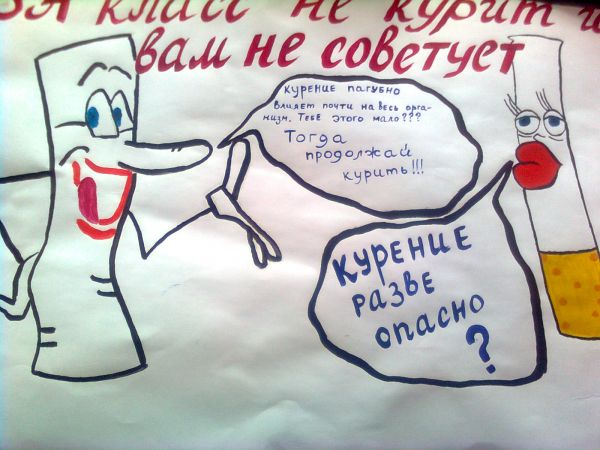 класс не курит и
вам не советует
КУРЕНИЕ ПАГУБНО
Влияет почти на весь орга-
низм. Тебе этого мало???
Тогда
продолжай
курить!!!
КУРЕНИЕ
РАЗВЕ
ОПАСНО
?